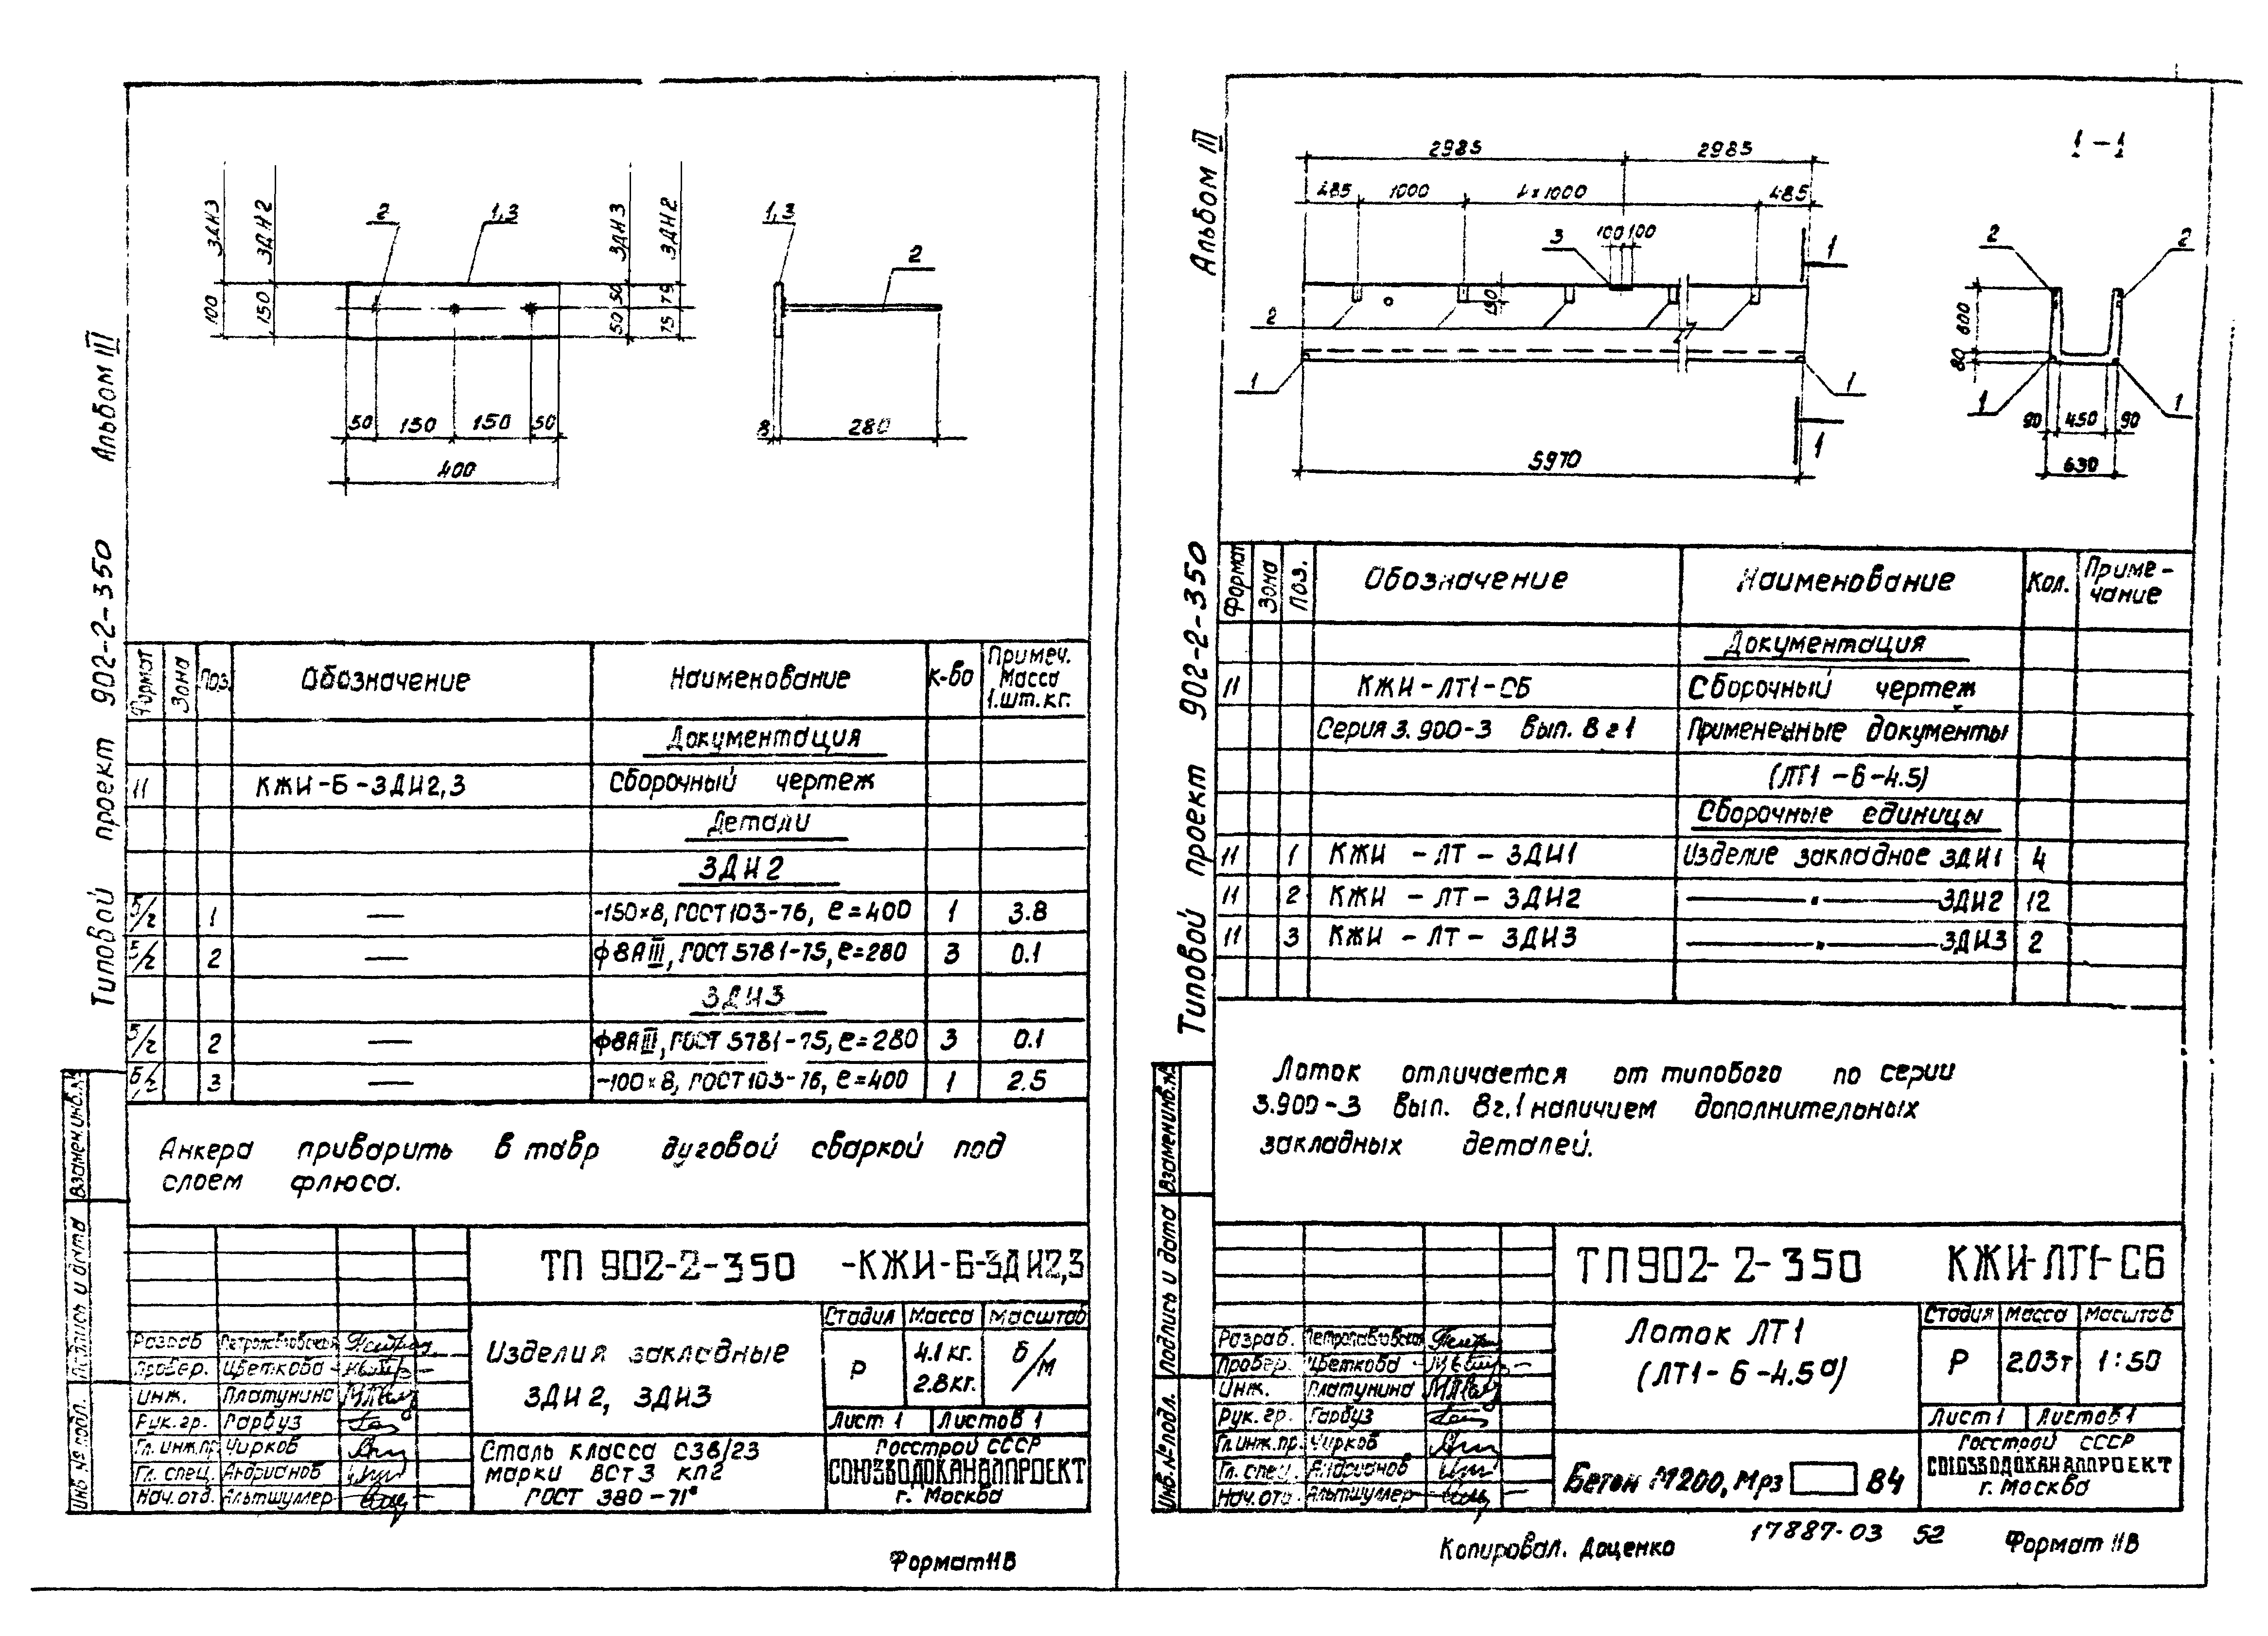 Типовой проект 902-2-350 Альбом III
ЗДИ3
ЗДИ2
2
1,3
ЗДИ3
ЗДИ2
100
150
50
50
75
75
50 150 150 50
400
1,3
2
8
280
Формат Зона Поз. Обозначение Наименование К-во Примеч. Масса 1.шт.кг.
Документация
11 КЖИ-Б-ЗДИ2,3 Сборочный чертеж
Детали
ЗДИ2
Б/2 1 — -150×8, ГОСТ103-76, e=400 1 3.8
Б/2 2 — ф8АIII, ГОСТ5781-75, e=280 3 0.1
ЗДИ3
Б/2 2 — ф8АIII, ГОСТ5781-75, e=280 3 0.1
Б/2 3 — -100×8, ГОСТ103-76, e=400 1 2.5
Анкера приварить в тавр дуговой сваркой под
слоем флюса.
Взамен.инв.№
Подпись и дата
Инв.№ подл.
ТП 902-2-350 -КЖИ-Б-ЗДИ2,3
Разраб Петропавловская
Провер. Цветкова
Инж. Платунина
Рук.гр. Гарбуз
Гл.инж.пр. Чирков
Гл. спец. Андрианов
Нач.отд. Альтшуллер
Изделия закладные
ЗДИ2, ЗДИ3
Стадия Масса Масштаб
Р 4.1 кг. 2.8кг. б/м
Лист 1 Листов 1
Сталь класса С38/23
марки ВСт3 кп2
ГОСТ 380-71*
Госстрой СССР
СОЮЗВОДОКАНАЛПРОЕКТ
г. Москва
Формат 11В
Типовой проект 902-2-350 Альбом III
2985 2985
485 1000 4×1000 485
3 100 100
1
150
2
1 1
1
5970
1-1
2 2
600
80
1 1
90 450 90
630
Формат Зона Поз. Обозначение Наименование Кол. Приме-
чание
Документация
11 КЖИ-ЛТ1-СБ Сборочный чертеж
Серия 3.900-3 Вып. 8 г1 Примененные документы
(ЛТ1-6-4.5)
Сборочные единицы
11 1 КЖИ -ЛТ- ЗДИ1 Изделие закладное ЗДИ1 4
11 2 КЖИ -ЛТ- ЗДИ2 —"— ЗДИ2 12
11 3 КЖИ -ЛТ- ЗДИ3 —"— ЗДИ3 2
Лоток отличается от типового по серии
3.900-3 вып. 8г.1 наличием дополнительных
закладных деталей.
Взаменинв.№
Подпись и дата
Инв.№подл.
ТП902-2-350 КЖИ-ЛТ1-СБ
Разраб. Петропавловская
Провер. Цветкова
Инж. Платунина
Рук. гр. Гарбуз
Гл.инж.пр. Чирков
Гл. спец. Андрианов
Нач.отд. Альтшуллер
Лоток ЛТ1
(ЛТ1-6-4.5а)
Стадия Масса Масштаб
Р 2.03т 1:50
Лист 1 Листов 1
Бетон М200, Мрз В4
Госстрой СССР
СОЮЗВОДОКАНАЛПРОЕКТ
г. Москва
Копировал. Доценко 17887-03 52 Формат 11В